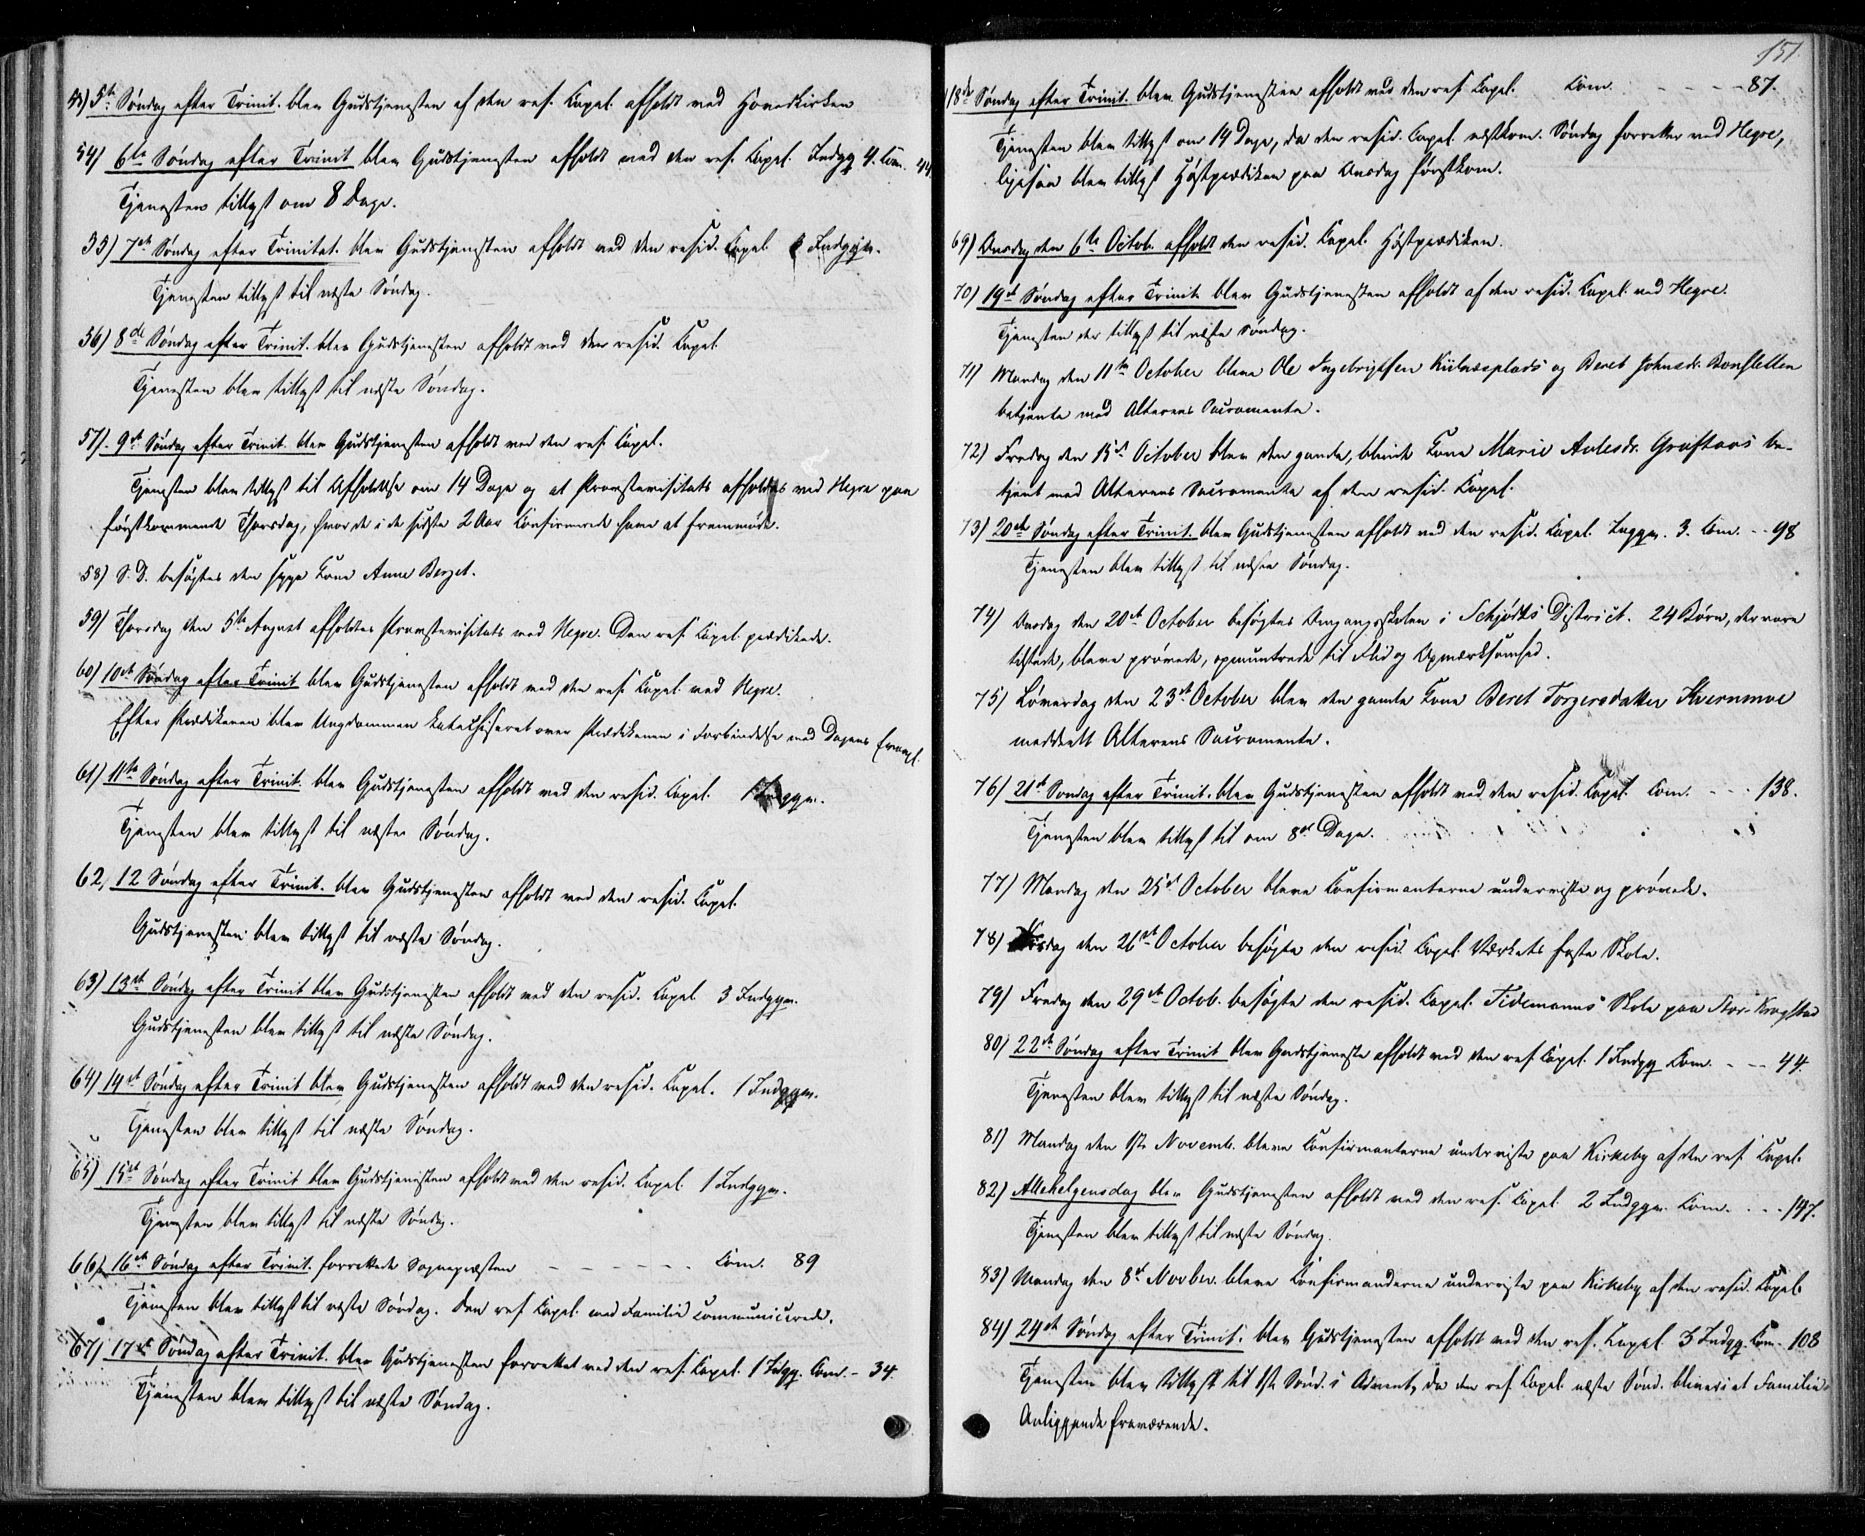 53) 5te Søndag efter Trinit. blev Gudstjenesten af den res. Capel. afholdt ved Hovedkirken
54) 6te Søndag efter Trinit blev Gudstjenesten afholdt ved den res. Capel. Indgg 4. Com. 44
Tjenesten tillyst om 8 Dage.
55) 7de Søndag efter Trinitat. blev Gudstjenesten afholdt ved den resid. Capel. Indggn.
Tjenesten tillyst til næste Søndag.
56) 8de Søndag efter Trinit. blev Gudstjenesten afholdt ved den resid. Capel.
Tjenesten blev tillyst til næste Søndag.
57) 9de Søndag efter Trinit. blev Gudstjenesten afholdt ved den res. Capel.
Tjenesten blev tillyst til Afholdelse om 14 Dage og at Provstevisitats afholdes ved Hegre paa
førstkommende Thorsdag, hvor de i de sidste 2 Aar Confirmerede have at fremmøde.
58) S. D. besøgtes den syge Kone Anne Berget.
59) Thorsdag den 5te August afholdtes Provstevisitats ved Hegre. Den res. Capel. prædikede.
60) 10de Søndag efter Trinit blev Gudstjenesten afholdt ved den res. Capel. ved Hegre.
Efter Prædikenen blev Ungdommen katechiseret over Prædikenen i Forbindelse med Dagens Evangel.
61) 11te Søndag efter Trinit. blev Gudstjenesten afholdt ved den resid. Capel. 1 Indggn.
Tjenesten blev tillyst til næste Søndag.
62, 12 Søndag efter Trinit. blev Gudstjenesten afholdt ved den resid. Capel.
Gudstjenesten blev tillyst til næste Søndag.
63) 13de Søndag efter Trinit blev Gudstjenesten afholdt ved den resid. Capel. 3 Indggn.
Gudstjenesten blev tillyst til næste Søndag.
64) 14de Søndag efter Trinit blev Gudstjenesten afholdt ved den resid. Capel. 1 Indggn.
Tjenesten blev tillyst til næste Søndag.
65) 15de Søndag efter Trinit blev Gudstjenesten afholdt ved den resid. Capel. 1 Indggn.
Tjenesten blev tillyst til næste Søndag.
66) 16de Søndag efter Trinit. forrettede Sognepræsten - - - - - - Com. 89
Tjenesten blev tillyst til næste Søndag. Den res. Capel. med Familie communicerede.
67) 17de Søndag efter Trinit. blev Gudstjenesten forrettet ved den res. Capel. 1 Indgg. Com. - 34.
Tjenesten blev tillyst til næste Søndag.
151.
18de Søndag efter Trinit. blev Gudstjenesten afholdt ved den res. Capel. Com. - - - - 87.
Tjenesten blev tillyst om 14 Dage, da den resid. Capel. næstkom. Søndag forretter ved Hegre,
ligesaa blev tillyst Høstprædiken paa Onsdag førstkom.
69) Onsdag den 6te Octob. afholdt den resid. Capel. Høstprædiken.
70) 19de Søndag efter Trinit. blev Gudstjenesten afholdt af den resid. Capel. ved Hegre.
Tjenesten der tillyst til næste Søndag.
71) Mandag den 11te October bleve Ole Ingebrigtsen Kiilnæsplads og Beret Johnsdr. Bonsletten
betjente med Alterens Sacramente.
72) Fredag den 15de October blev den gamle, blinde Kone Marie Antesdr. Græftaas be-
tjent med Alterens Sacramente af den resid. Capel.
73) 20de Søndag efter Trinit. blev Gudstjenesten afholdt ved den resid. Capel. Inggn. 3. Com. - - 98
Tjenesten blev tillyst til næste Søndag.
74) Onsdag den 20de October besøgtes Omgangsskolen i Schjølds District. 24 Børn, der vare
tilstede, bleve prøvede, opmuntrede til Flid og Opmærksomhed.
75) Løverdag den 23de October blev den gamle Kone Beret Torgersdatter Kvernmoe
meddeelt Alterens Sacramente.
76) 21de Søndag efter Trinit. blev Gudstjenesten afholdt ved den resid. Capel. Com. - - - 138.
Tjenesten blev tillyst til om 8de Dage.
77) Mandag den 25de October bleve Confirmanterne underviste og prøvede.
78) Tirsdag den 26de October besøgte den resid. Capel. Værkets faste Skole.
79) Fredag den 29de Octob. besøgte den resid. Capel. Tidemanns Skole paa Stor-Krogstad
80) 22de Søndag efter Trinit blev Gudstjeneste afholdt ved den res. Capel. 1 Indgg Com. - - - 44.
Tjenesten blev tillyst til næste Søndag.
81) Mandag den 1ste Novemb. bleve Confirmanterne underviste paa Kirkeby af den res. Capel.
82) Allehelgensdag blev Gudstjenesten afholdt ved den res. Capel. 2 Indggn. Com. - - - 147.
Tjenesten blev tillyst til næste Søndag.
83) Mandag den 8de Novber. bleve Confirmanderne underviste paa Kirkeby af den resid. Capel.
84) 24de Søndag efter Trinit. blev Gudstjenesten afholdt ved den res. Capel. 3 Indgg. Com. - 108
Tjenesten blev tillyst til 1ste Sønd. i Advent, da den res. Capel. næste Sønd. bliver i et Familie-
Anliggende fraværende.